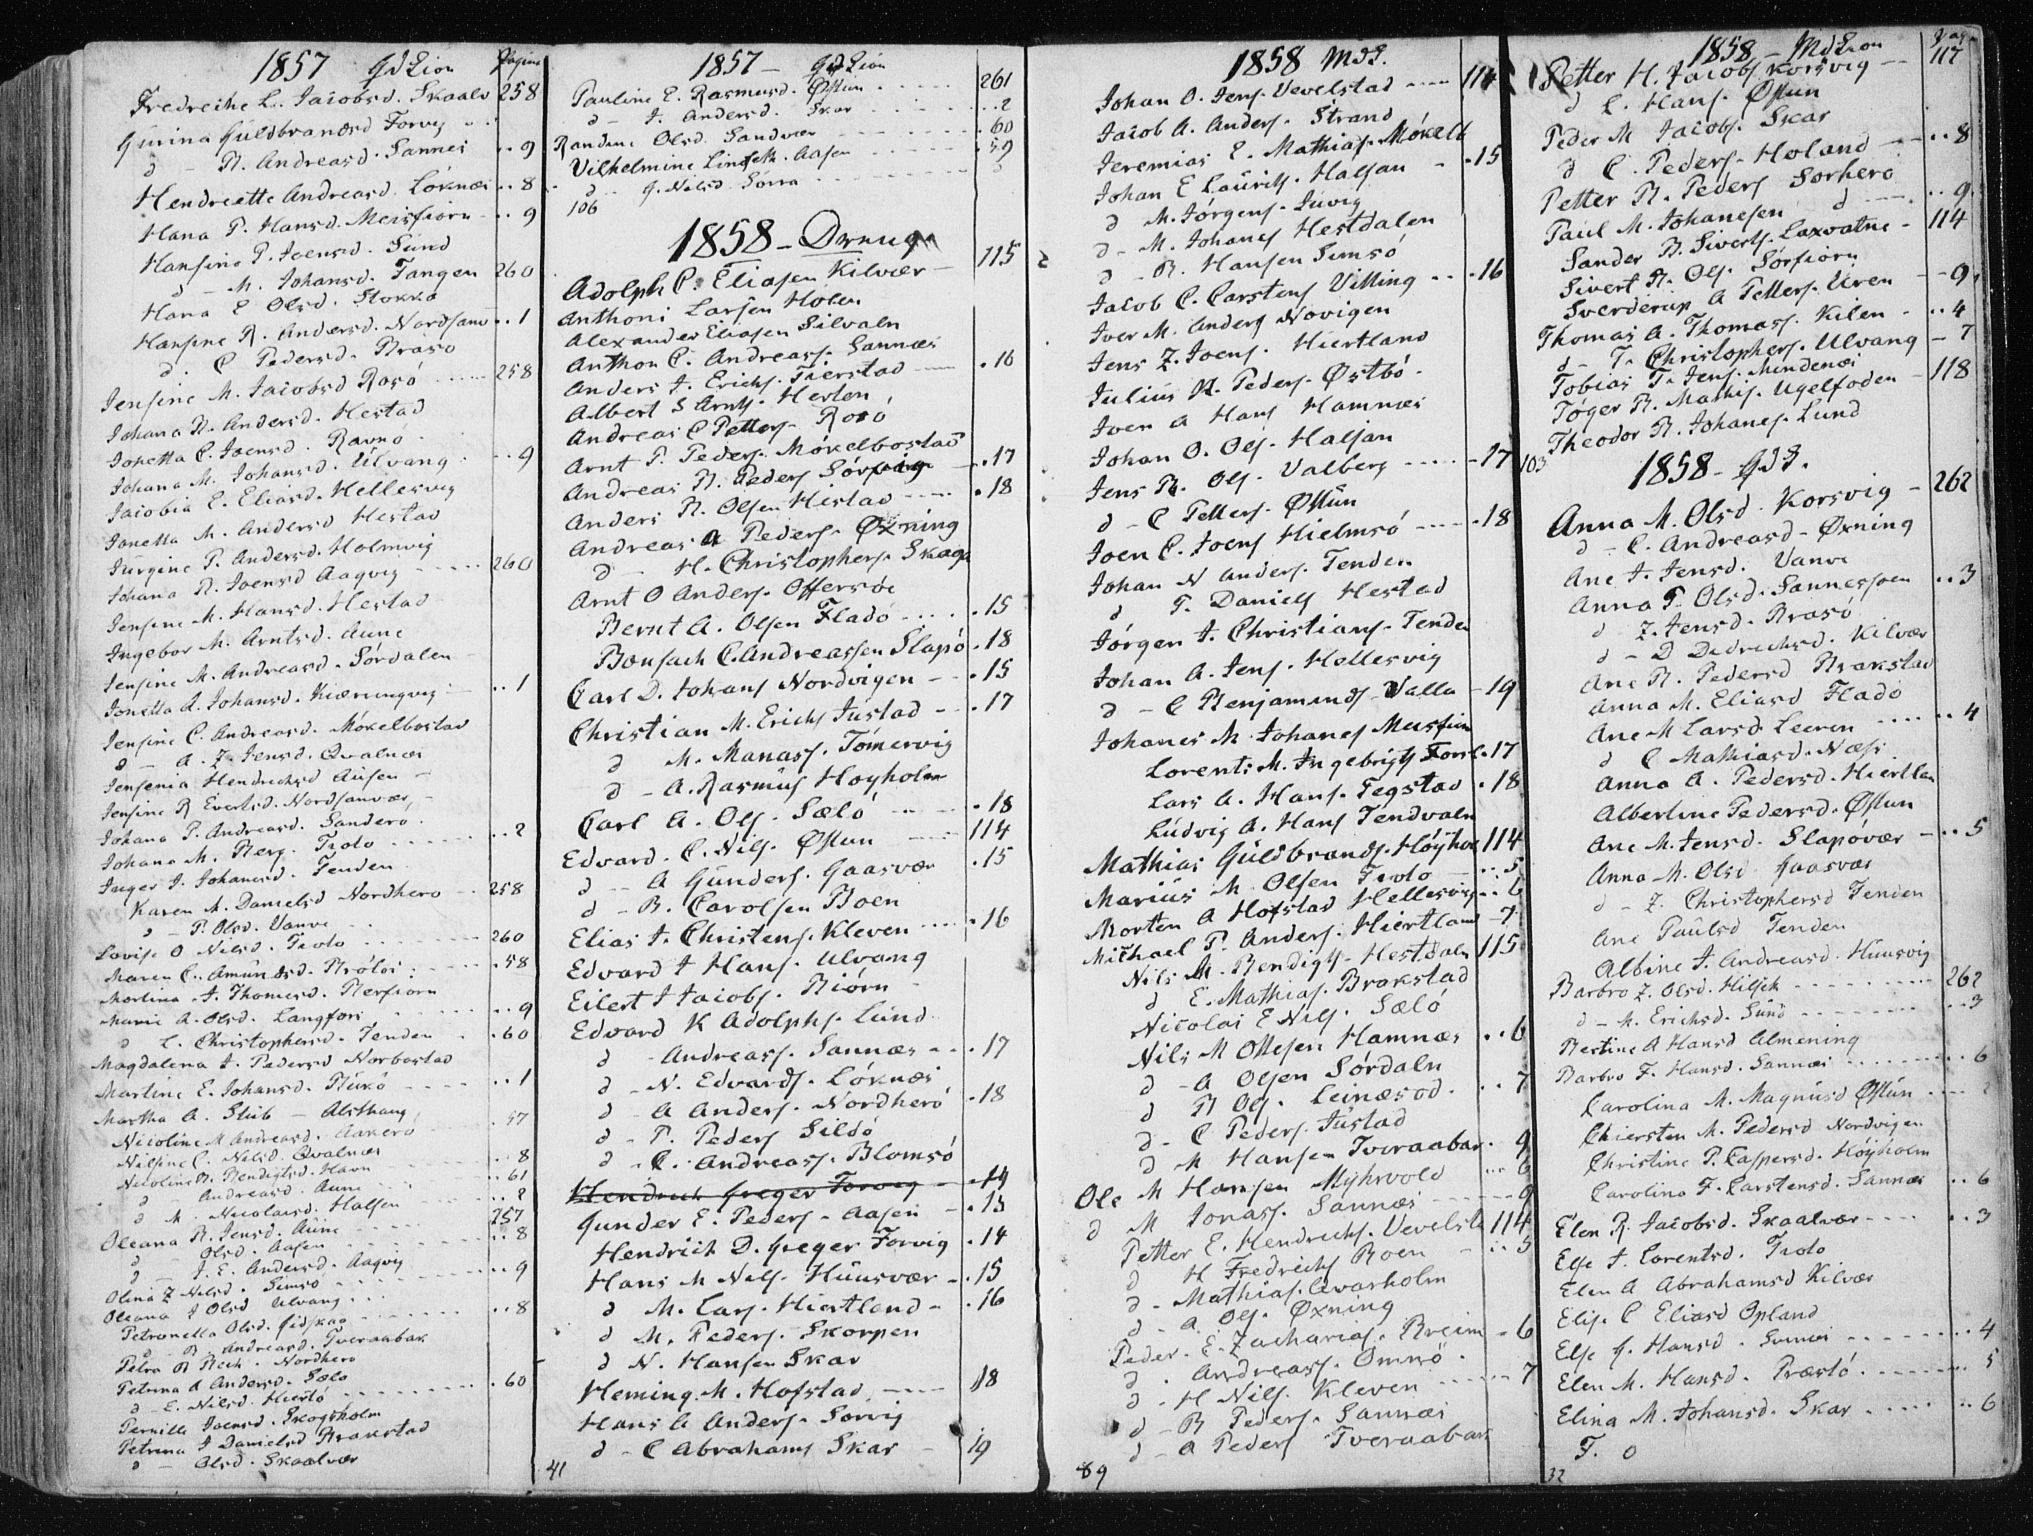 1857 Qd Lion Pagina
Fredreike L. Jacobsd. Skaalv 258
Gurina Guldbrandsd Forvig
d - R. Andreasd. Sannes .. 9
Hendreette Andreasd. Löknæs .. 8
Hana P. Hansd. Meisfiorn .. 9
Hansine P. Joensd. Sund
d - M. Johansd. Tangen 260
Hana E Olsd. Stokka
Hansine R. Andersd. Nordsanv .. 1
d. C Pedersd. Brasö
Jensine M. Jacobsd Rosö 258
Johana R. Andersd. Hestad
Jonetta C. Joensd. Ravnö
Johana M. Johansd. Ulvang .. 9
Jacobia E. Eliasd. Hellesvig
Janetta M. Andersd Hestad
Jurgine P. Andersd. Holmvig
Johana R. Joensd Aagvig 260
Jensine M. Hansd. Hestad
Ingebor M. Arntsd. Aune
Jensine M. Andreasd. Sördalen
Jonetta A. Johansd. Kiærringvig .. 1
Jensine C. Andreasd. Mökelbostad
d - A. Z. Jensd. Qvalnæs
Jensenia Hendrichsd Aüsen
Jensine R Evertsd. Nordsanvær
Johana P. Andreasd. Sanderö
Johana M. Berg. Trolo .. 2
Inger J. Johansd. Tenden
Karen M. Danielsd Nordherö 258
d - P. Olsd. Vanve
Lovise O Nilsd. Trolo 260
Maren C. Amundsd. Brölos . 58
Merlina J. Thomesd. Berfiorn
Marie A. Olsd. Langfors .. 9
d L. Christophersd. Tenden . 60
Magdalena J. Pedersd Norbostad
Martine E. Johansd. Rükö .. 1
Martha A. Stub - Alsthaug
Nicoline M Andreasd. Aakerö . 57
Nilsine C. Nilsd. Qvalnæs
Nicoline B. Bendigtsd. Havn .. 8
d Andreasd. Aune .. 61
d M. Nicolaisd. Halsen .. 2
Oleana R. Jensd. Aune 257
d - Olsd. Aasen .. 8
d - J. E. Andersd. Aagvig
Olina Z Nilsd. Simsö .. 9
Oleana J Olsd Ulvang
Petronella Olsd. Eidskag .. 8
d - R. Andreasd. Tveraabak
Petra B Bech. Nordherö
Petrina A Andersd. Sælö
d - E. Nilsd. Hiertö . 60
Pernilla Joensd. Skogsholm
Petrina J Danielsd Brakstad
d - Olsd. Skaalvær
1857 - Qd Lion
Pauline E. Rasmusd. Östun 261
d - J. Andersd. Skar .. 2
Randine Olsd. Sandvær . 60
Vilhelmine Lindseth. Aasen . 59
d - G. Nilsd. Sörra
106
1858 - Drenge
Adolph C. Eliasen Kilvær 115
Anthoni Larsen Holen
Alexander Eliasen Silvaln
Anthon C. Andreass. Sannæs
Anders J. Erichs. Tierstad . 16
Albert S Arnts. Herlen
Andreas C Petters. Rosö
Arnt P. Peders. Mökelbostad
Andreas R. Peders Sörvig . 17
Anders R. Olsen Histad . 18
Andreas A Peders. Öxning
d - H. Christophers. Skaga
Arnt O Anders. Offersöe
Bernt A. Olsen Fladö . 15
Bonsach C. Andreassen Slapö . 18
Carl D. Johans Nordvigen . 15
Christian M. Erichs Justad . 17
d M. Manass. Tömervig
d - A. Rasmus Höyholm
Carl A. Ols. Sælö . 18
Edvard. C. Nils. Östun 114
d - A Gunders. Gaasvær . 15
d - B. Carolsen Boen
Elias J. Christens. Kleven . 16
Edvard J Hans. Ulvang
Eilert J Jacobs. Biörn
Edvard K Adolphs. Lund
d - Andreass. Sannæs . 17
d - N. Edvards. Löknæs
d - A Anders. Nordherö . 18
d - P. Peders Sildö
d - C. Andreass. Blomsö
Hendrich Greger Forvig . 14
Gunder E. Peders. Aasen . 13
Hendrich D. Greger Forvig . 14
Hans M Nils. Huusvær . 15
d M. Lars. Hiertland . 16
d M. Peders. Skorpen
d N. Hansen Skar
Heming. M. Hofstad 18
Hans A Anders. Sörvig
d - C Abrahams Skar 19
41
1858 MdL.
Johan O. Jens. Vevelstad 114
Jacob A. Anders. Strand
Jeremias E. Mathias. Mökelb
Johan E Laurits. Halsan . 15
d M. Jörgens. Juvig
d - M. Johanes Hestdalen
d - R. Hansen Simsö
Jacob C. Carstens Vitting . 16
Iver M. Anders Novigen
Jens Z. Joens. Hiertland
Julius N. Peders. Östbö
Joen A Hans Hamnæs
Johan O. Ols. Halsan
Jens B. Ols. Valberg 17
d - C Petters. Östun
Joen E. Joens Hielmsö . 18
Johan N Anders. Tenden
d P. Daniels Hestad
Jörgen J. Christians. Tenden
Johan A. Jens. Hellesvig
d - C Benjamins. Valla 19
Johanes M. Johanes Meisfiorn
Lorents M. Ingebrigts Forsl . 17
Lars A. Hans. Tegstad . 18
Ludvig A. Hans Tendvaln
Mathias Guldbrands. Höyhol 114
Marius M. Olsen Trolo .. 5
Morten A Hofstad Hellesvig .. 6
Michael P. Anders. Hiertland 7
Nils M. Bendigts. Hestdaln 115
d E. Mathias. Brakstad
Nicolai E Nils. Sælö
Nils M Ottesen Hamnæs .. 6
d - A Olsen Sördaln
d B Ols. Leinæsod. .. 7
d - C Peders. Justad
d M Hansen Tveraabak . 9
Ole M Hansen Myhrvold .. 6
d M Jonass. Sannæs 9
Petter E. Hendrichs. Vevelsta 114
d H Fredrichs Boen .. 5
d - Mathias. Qvarholm
d - A Ols. Öxning
Peder. E. Zacharias. Breim . 6
d - Andreass. Omnö
d - H Nils. Kleven 7
d - B Peders. Sannæs
d - A Peders Tveraabak
89
1858 - MdLion Pag
Petter H. Jacobs Korsvig 117
d E. Hans. Östun
Peder M Jacobs. Skar
d C. Peders. Holand .. 8
Petter B. Peders Sörherö
Paul M. Johanesen d .. 9
Sander B. Siverts. Laxvatne 114
Sivert B. Ols. Sörfiorn
Sverderup A Petters. Uren 9
Thomas A. Thomass. Kilen .. 4
d - T. Christophers. Ulvang 7
Tobias T. Jens. Mindenæs
Töger B. Mathis. Ugelfoden 118
Theodor B. Johanes. Lund
103
1858 - Qd L.
Anna M. Olsd. Korsvig 262
d - C. Andreasd. Öxning
Ane J. Jensd. Vanve
Anna P. Olsd. Sannessoen .. 3
d Z. Jensd. Brasö
d - D Dedrichsd. Kilvær
Ane B. Pedersd Brakstad
Anna M. Eliasd Fladö
Ane M Larsd. Leeren .. 4
d C Mathiasd. Næss
Anna A. Pedersd. Hiertlan
Albertine Pedersd. Östun
Ane M. Jensd. Slapövær .. 5
Anna M. Olsd Gaasvær
d - Z. Christophersd Tenden
Ane Paulsd Tenden
Albine J. Andreasd. Huusvig
Barbro Z. Olsd. Hilsek 262
d - M. Erichsd. Sund .. 3
Bertine A Hansd Almening
Barbro F. Hansd. Sannæs .. 6
Carolina M. Magnusd Östun
Chiersten M. Pedersd Nordvigen
Christine P. Caspersd. Höyholm
Carolina F. Carstensd. Sannæs .. 6
Elen R. Jacobsd. Skaalvær .. 3
Else J. Lorentsd. Trolo
Elen A Abrahamsd Kilvær
Elis. C Eliasd Opland
Else G. Hansd. Sannæs .. 4
Elen M. Hansd. Præstö 5
Elina M. Johansd. Skar .. 6
T. O
32